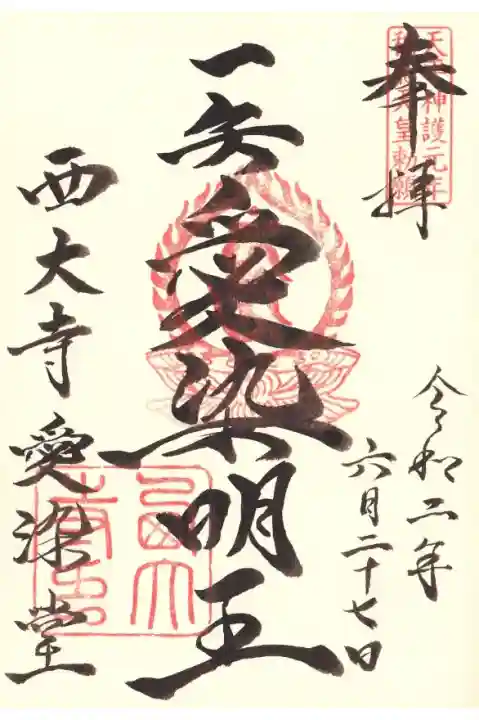 奉拝
天平神護元年
称徳天皇勅願
令和二年
六月二十七日
一矢愛染明王
西大寺愛染堂